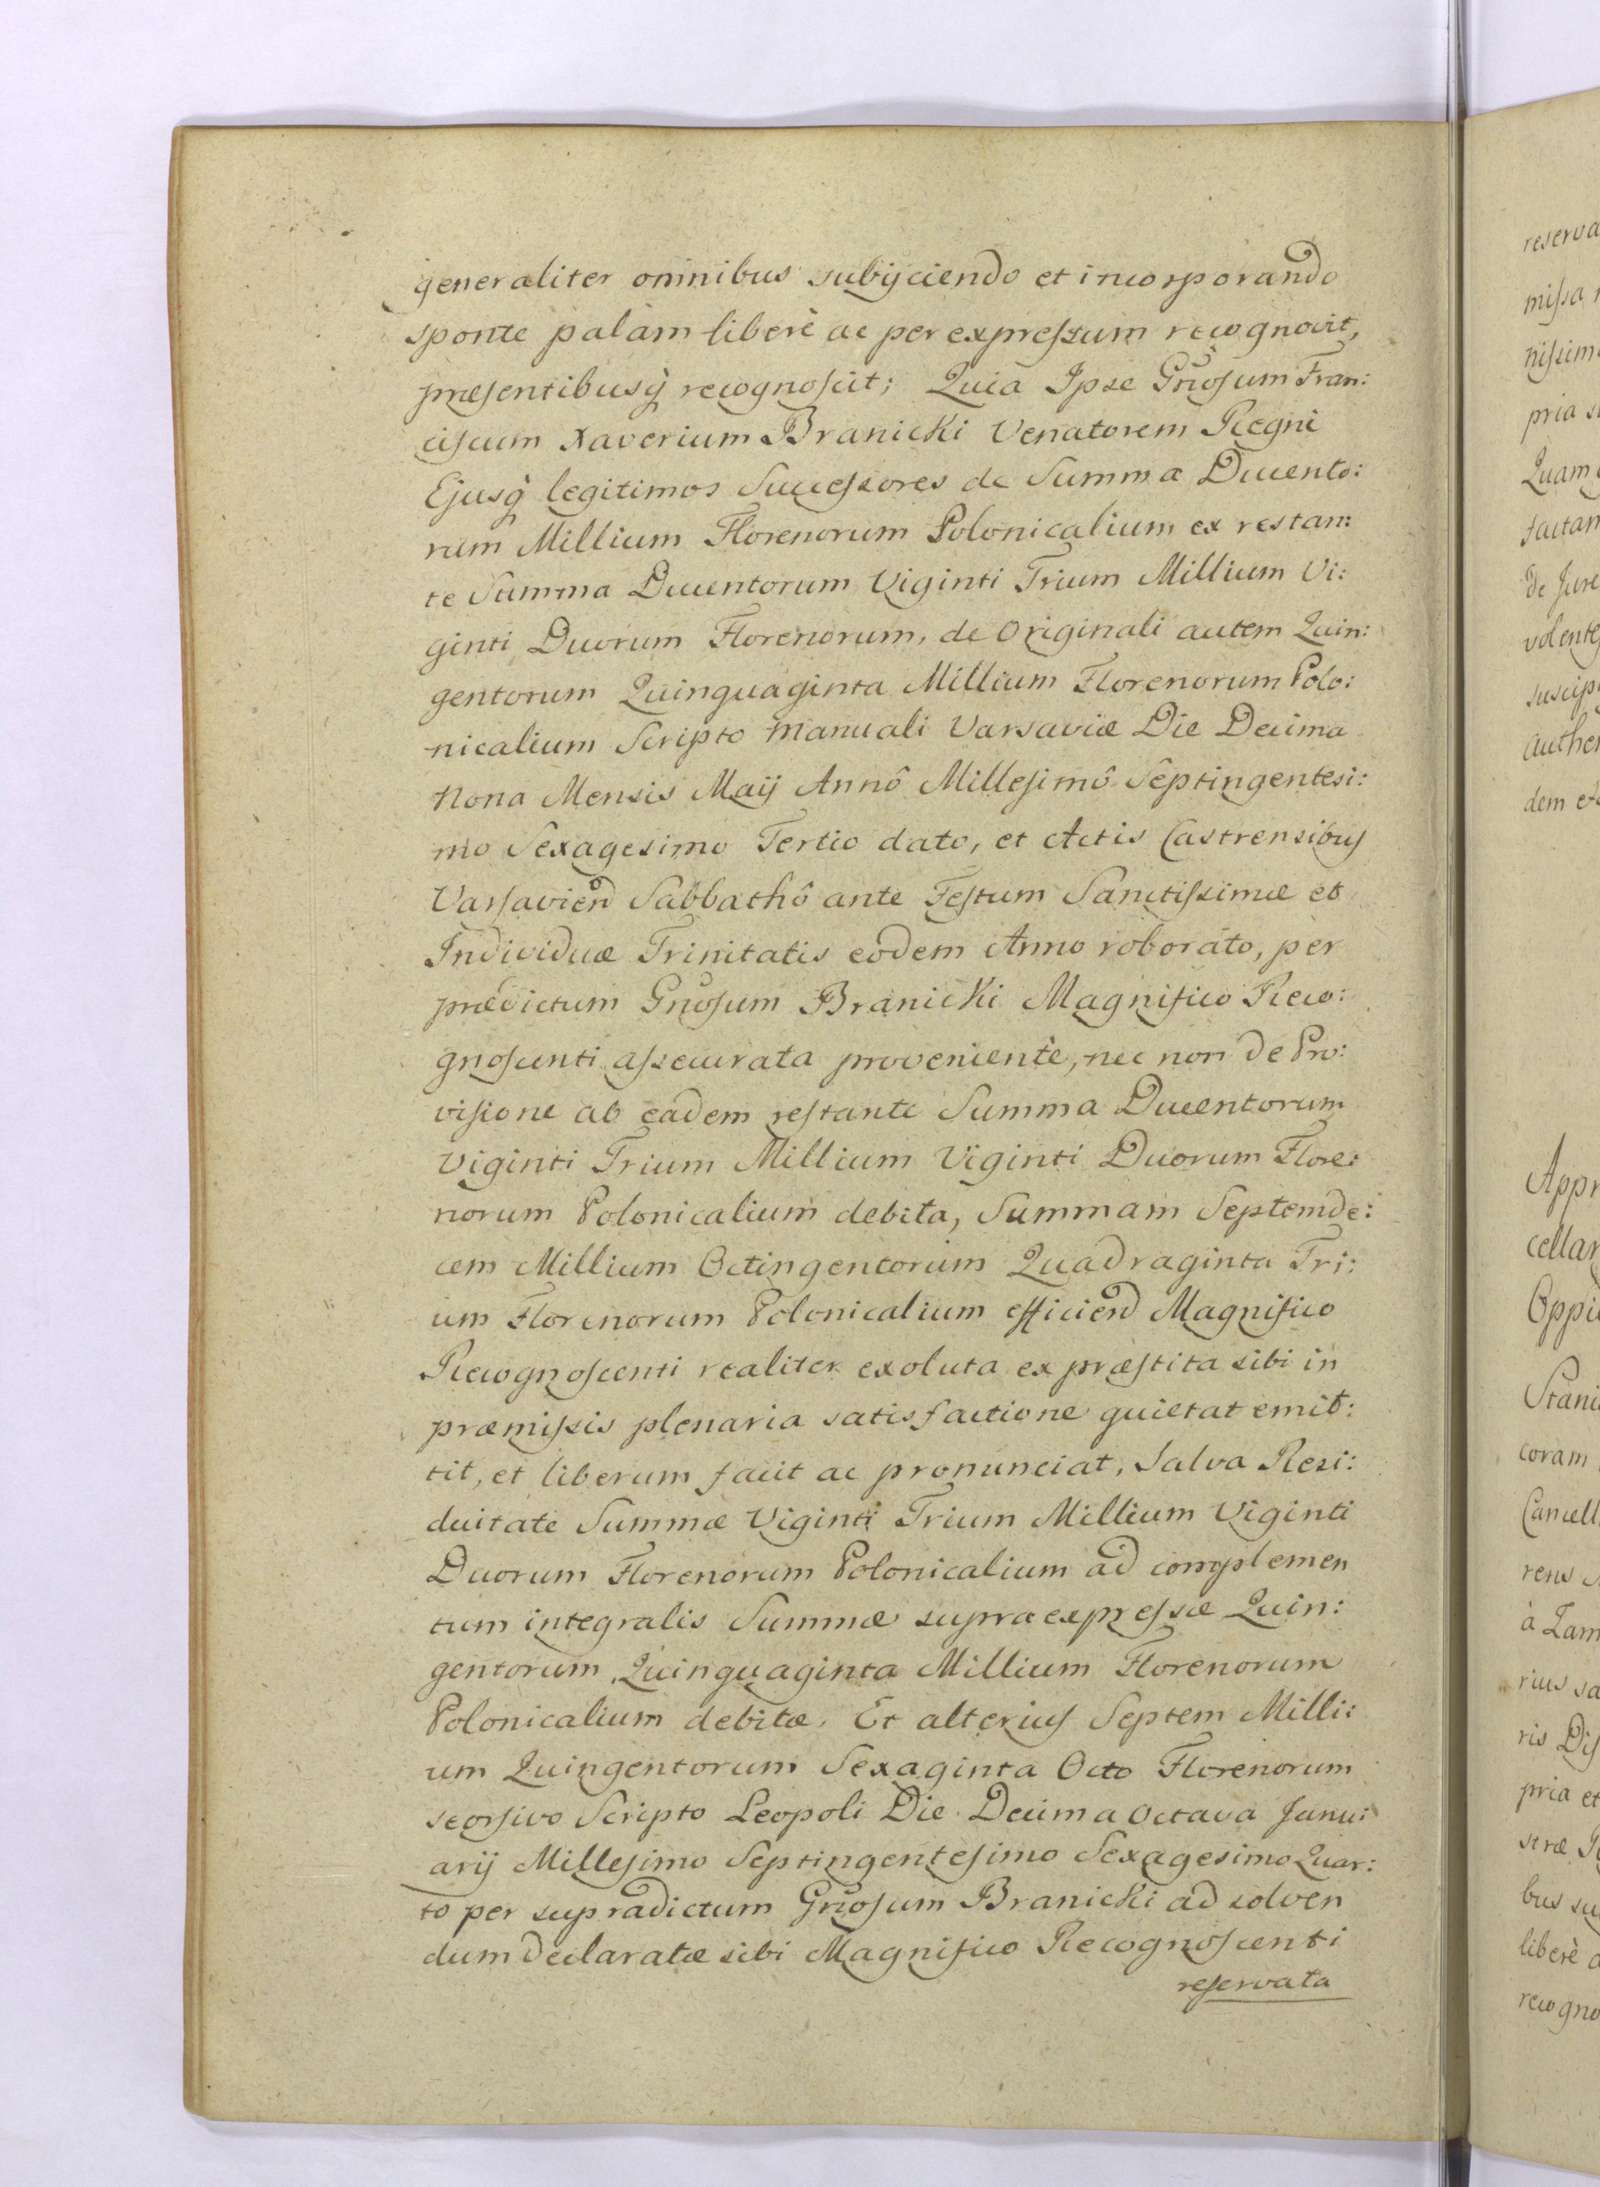 generaliter omnibus subijciendo et incorporando
sponte palàm liberè ac per expressum recognovit,
præsentibusq̀ recognoscit; Quia Ipse Gnosum Fran:
ciscum Xaverium Branicki Venatorem Regni
Ejusq̀ legitimos Successores de Summa Ducento:
rum Millium Florenorum Polonicalium ex restan:
te Summa Ducentorum Viginti Trium Millium Vi:
ginti Duorum Florenorum, de Originali autem Quin:
gentorum Quinquaginta Millium Florenorum Polo:
nicalium Scripto manuali Varsaviæ Die Decima
Nona Mensis Maij Annô Millesimô Septingentesi:
mo Sexagesimo Tertio dato, et Actis Castrensibus
Varsavien Sabbathô ante Festum Sanctissimæ et
Individuæ Trinitatis eodem Anno roborato, per
prædictum Gnosum Branicki Magnifico Reco:
gnoscenti assecurata proveniente, nec non de Pro:
visione ab eadem restante Summa Ducentorum
Viginti Trium Millium Viginti Duorum Flore:
norum Polonicalium debita, Summam Septemde:
cem Millium Octingentorum Quadraginta Tri:
um Florenorum Polonicalium efficien Magnifico
Recognoscenti realiter exoluta ex præstita sibi in
præmissis plenaria satisfactione quietat emit:
tit, et liberum facit ac pronunciat, Salva Resi:
duitate Summæ Viginti Trium Millium Viginti
Duorum Florenorum Polonicalium ad complemen
tum integralis Summæ supraexpressæ Quin:
gentorum Quinquaginta Millium Florenorum
Polonicalium debitæ, Et alterius Septem Milli:
um Quingentorum Sexaginta Octo Florenorum
seorsivo Scripto Leopoli Die Decima Octava Janu:
arij Millesimo Septingentesimo Sexagesimo Quar:
to per supradictum Gnosum Branicki ad solven
dum declaratæ sibi Magnifico Recognoscenti
reservata
reserva
missa
nissim
pria
Quam
factam
de Jure
volente
suscip
authen
dem
Appr
cellar
Oppi
Stani
coram
Cancell
rens
à Zam
rius sa
ris Dis
pria et
stræ
bus su
liberè a
recogno